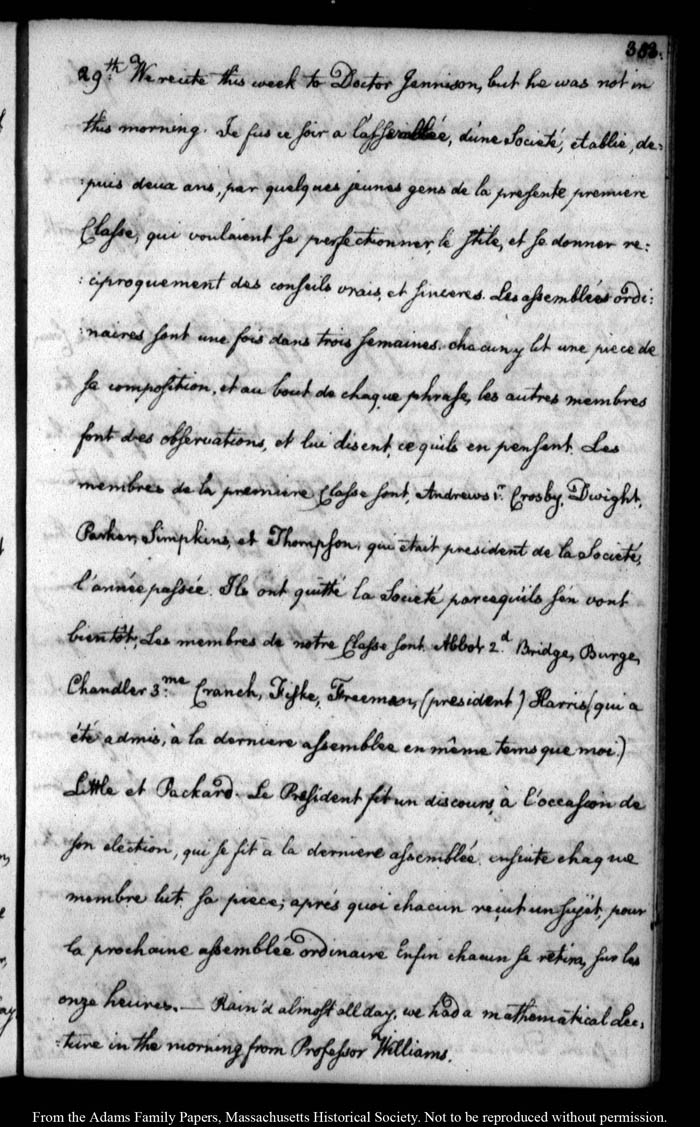 383.
29th. We recite this week to Doctor Jennison, but he was not in
this morning. Je fus ce soir a l'assemblée, d'une Societé, etablie, de-
:puis deux ans, par quelques jeunes gens de la presente premiere
Classe, qui voulaient se perfectionner, le stile, et se donner re:
:ciproquement des conseils vrais, et sinceres. Les assemblées ordi:
:naires sont une fois dans trois semaines. chacun y lit une piece de
sa composition, et au bout de chaque phrase, les autres membres
font des observations, et lui disent, ce qu'ils en pensent. Les
membres de la premiere Classe sont, Andrews 1r. Crosby, Dwight,
Parker, Simpkins, et Thompson, qui était president de la Societé,
l'année passée. Ils ont quitté la Societé parcequ'ils s'en vont
bientôt; Les membres de notre Classe sont Abbot 2.d Bridge, Burge,
Chandler 3.me Cranch, Fiske, Freeman, (president) Harris (qui a
été admis, à la derniere assemblée en même tems que moi.)
Little et Packard. Le President fit un discours, à l'occasion de
son election, qui se fit a la derniere assemblée. ensuite chaque
membre lut sa piece; aprés quoi chacun reçut un sujet, pour
la prochaine assemblée ordinaire Enfin chacun se retira, sur les
onze heures. — Rain'd almost all day, we had a mathematical Lec:
:ture in the morning from Professor Williams.
From the Adams Family Papers, Massachusetts Historical Society. Not to be reproduced without permission.